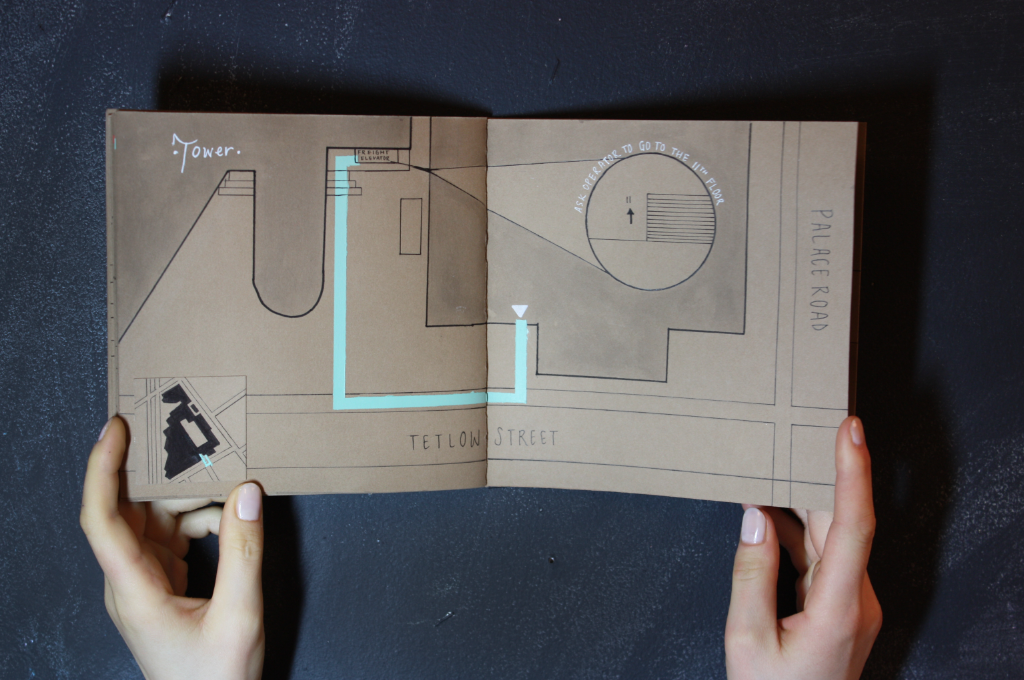 ·Tower·
FREIGHT
ELEVATOR
ASK OPERATOR TO GO TO THE 11TH FLOOR
11
PALACE ROAD
TETLOW STREET